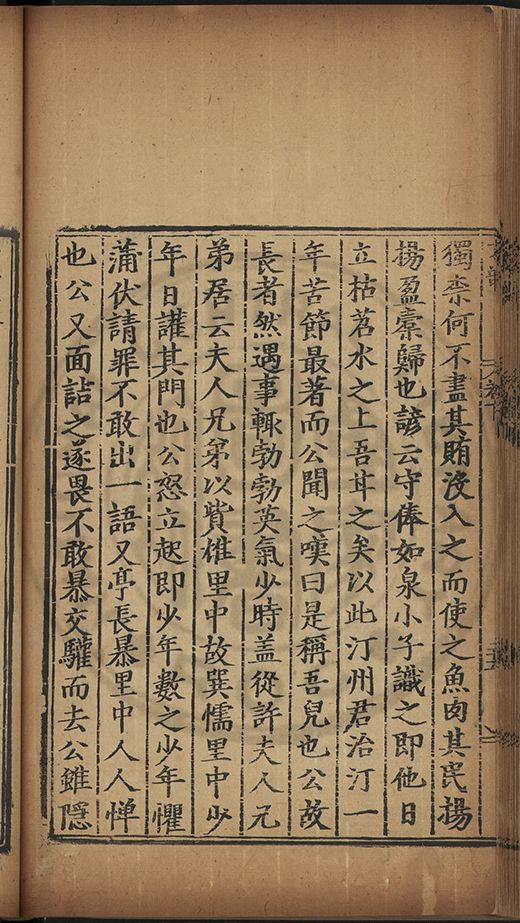 獨柰何不盡其賄沒入之而使之魚肉其民揚
揚盈橐歸也諺云守俸如泉小子識之即他日
立枯茗水之上吾甘之矣以此汀州君治汀一
年苦節最著而公聞之嘆曰是稱吾兒也公故
長者然遇事輙勃勃英氣少時盖從許夫人兄
弟居云夫人兄弟以貲雄里中故巽懦里中少
年日讙其門也公怒立起即少年數之少年懼
蒲伏請罪不敢出一語又亭長暴里中人人憚
也公又面詰之遂畏不敢暴交驩而去公雖隠